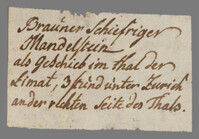 Brauner Schiefriger
Mandelstein
als geschieb im thal der
Limat, 3 stund unter Zürich
an der rechten Seite des Thals.